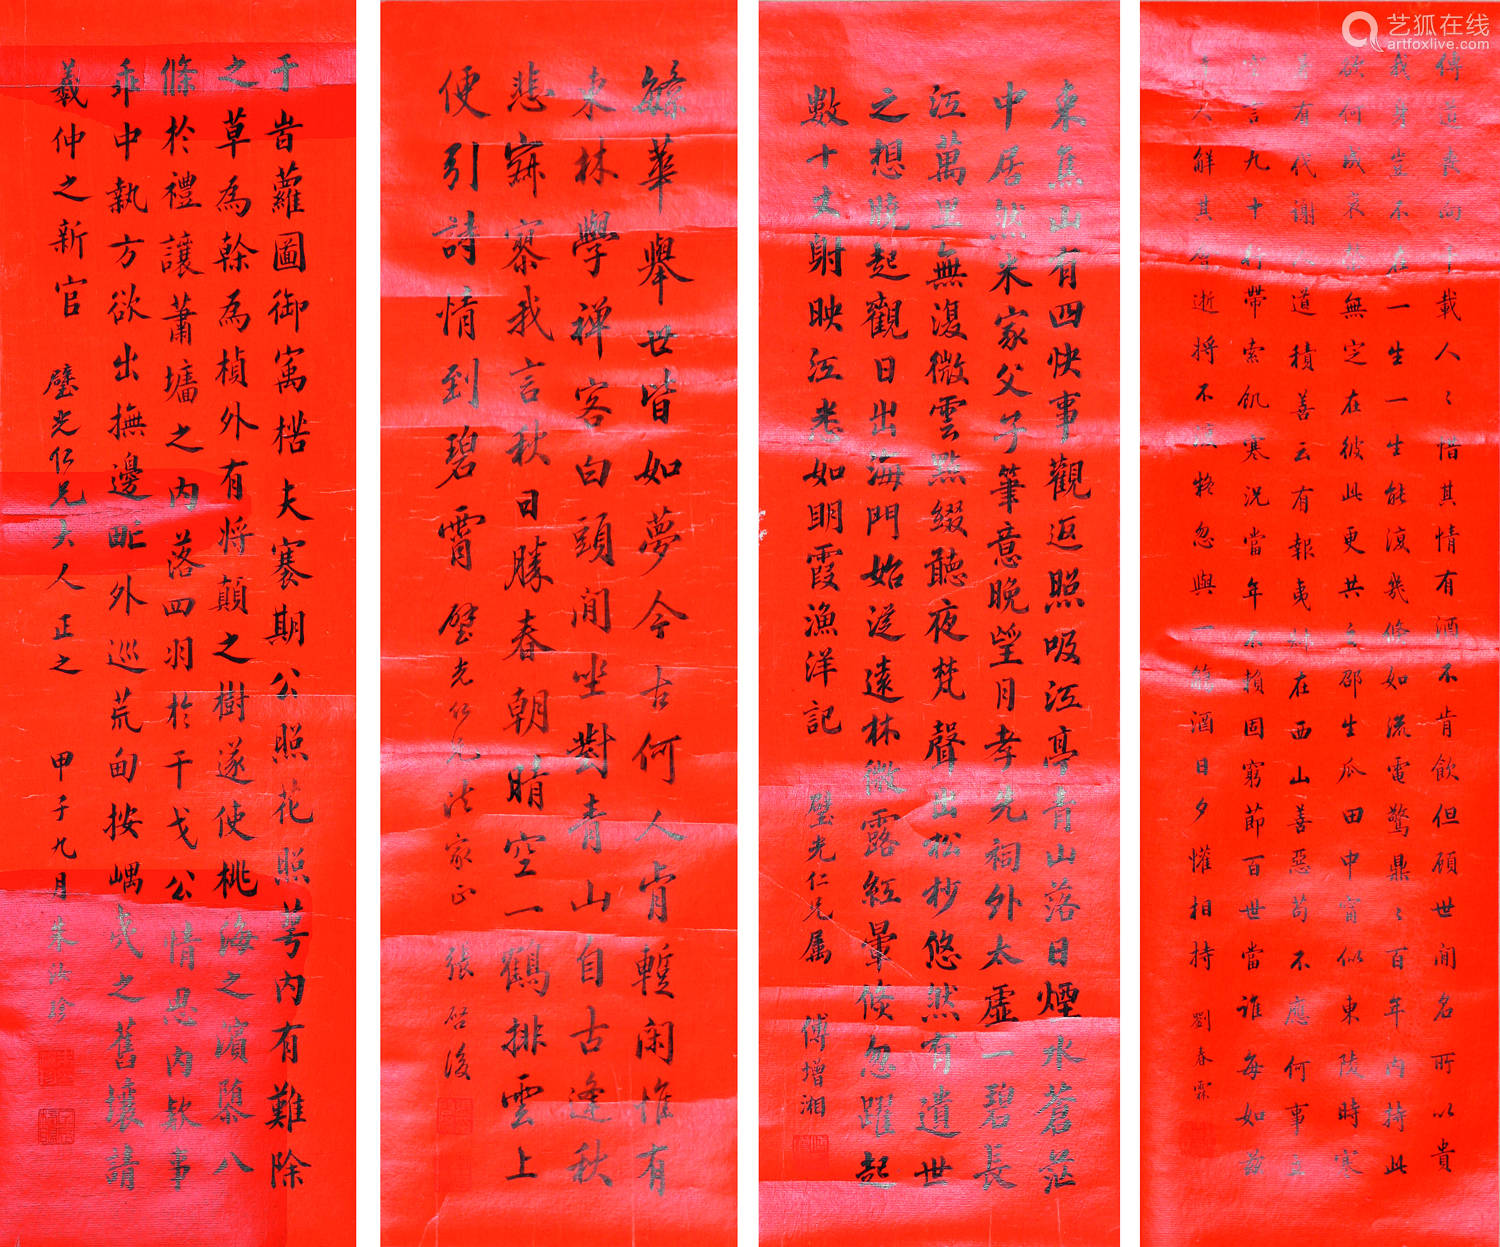 艺狐在线
artfoxlive.com
傳道喪向千載人〻惜其情有酒不肯飲但顧世間名所以貴
我身豈不在一生一生能復幾倏如流電驚鼎〻百年內持此
欲何成衰榮無定在彼此更共之邵生瓜田中寧似東陵時寒
暑有代謝人道積善云有報夷叔在西山善惡苟不應何事立
空言九十行帶索飢寒況當年不賴固窮節百世當誰每如茲
達人解其會逝將不復疑忽與一觴酒日夕懽相持 劉春霖
東焦山有四快事觀返照吸江亭青山落日煙水蒼茫
中居然米家父子筆意晚望月孝先祠外太虛一碧長
江萬里無復微雲點綴聽夜梵聲出松杪悠然有遺世
之想曉起觀日出海門始從遠林微露紅暈倏忽躍起
數十丈射映江 如明霞漁洋記
璧光仁兄属 傅增湘
繁華舉世皆如夢今古何人肯暫閑惟有
東林學禅客白頭閒坐對青山自古逢秋
悲寂寥我言秋日勝春朝晴空一鶴排雲上
便引詩情到碧霄 璧光仁兄法家正 張啓後
于旹蘿圖御寓楛夫褰期公照花照萼內有難除
之草為榦為楨外有將顛之樹遂使桃海之濱隳八
條於禮讓蕭墻之內落四羽於干戈公情思內款事
乖中執方欲出撫邊甿外巡荒甸按嵎夷之舊壤請
羲仲之新官 璧光仁兄大人正之 甲子九月朱汝珍